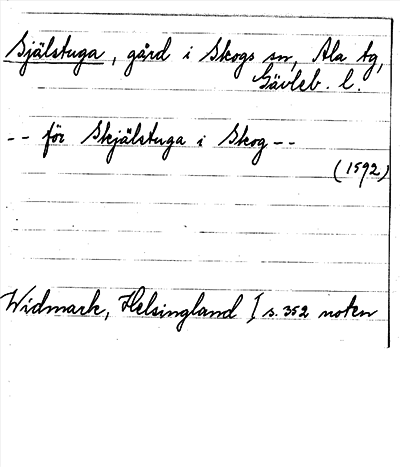 Själstuga, gård i Skogs sn, Ala tg,
Gävleb. l.
-- för Skjälstuga i Skog --
(1592)
Widmark, Helsingland I s. 352 noten